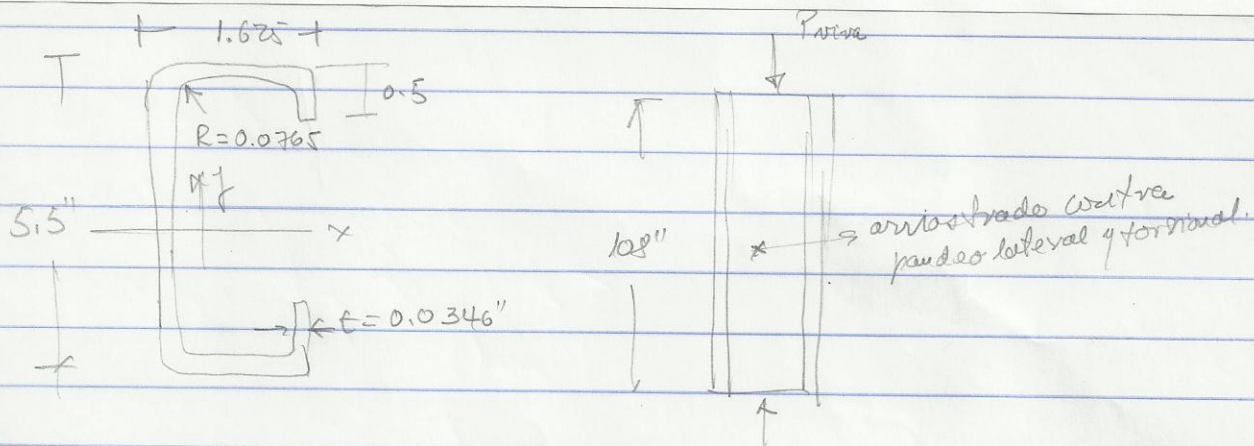 1.625
0.5
R=0.0765
y
5.5"
x
t=0.0346"
Pviva
108"
x
arriostrado contra
pandeo lateral y torsional.